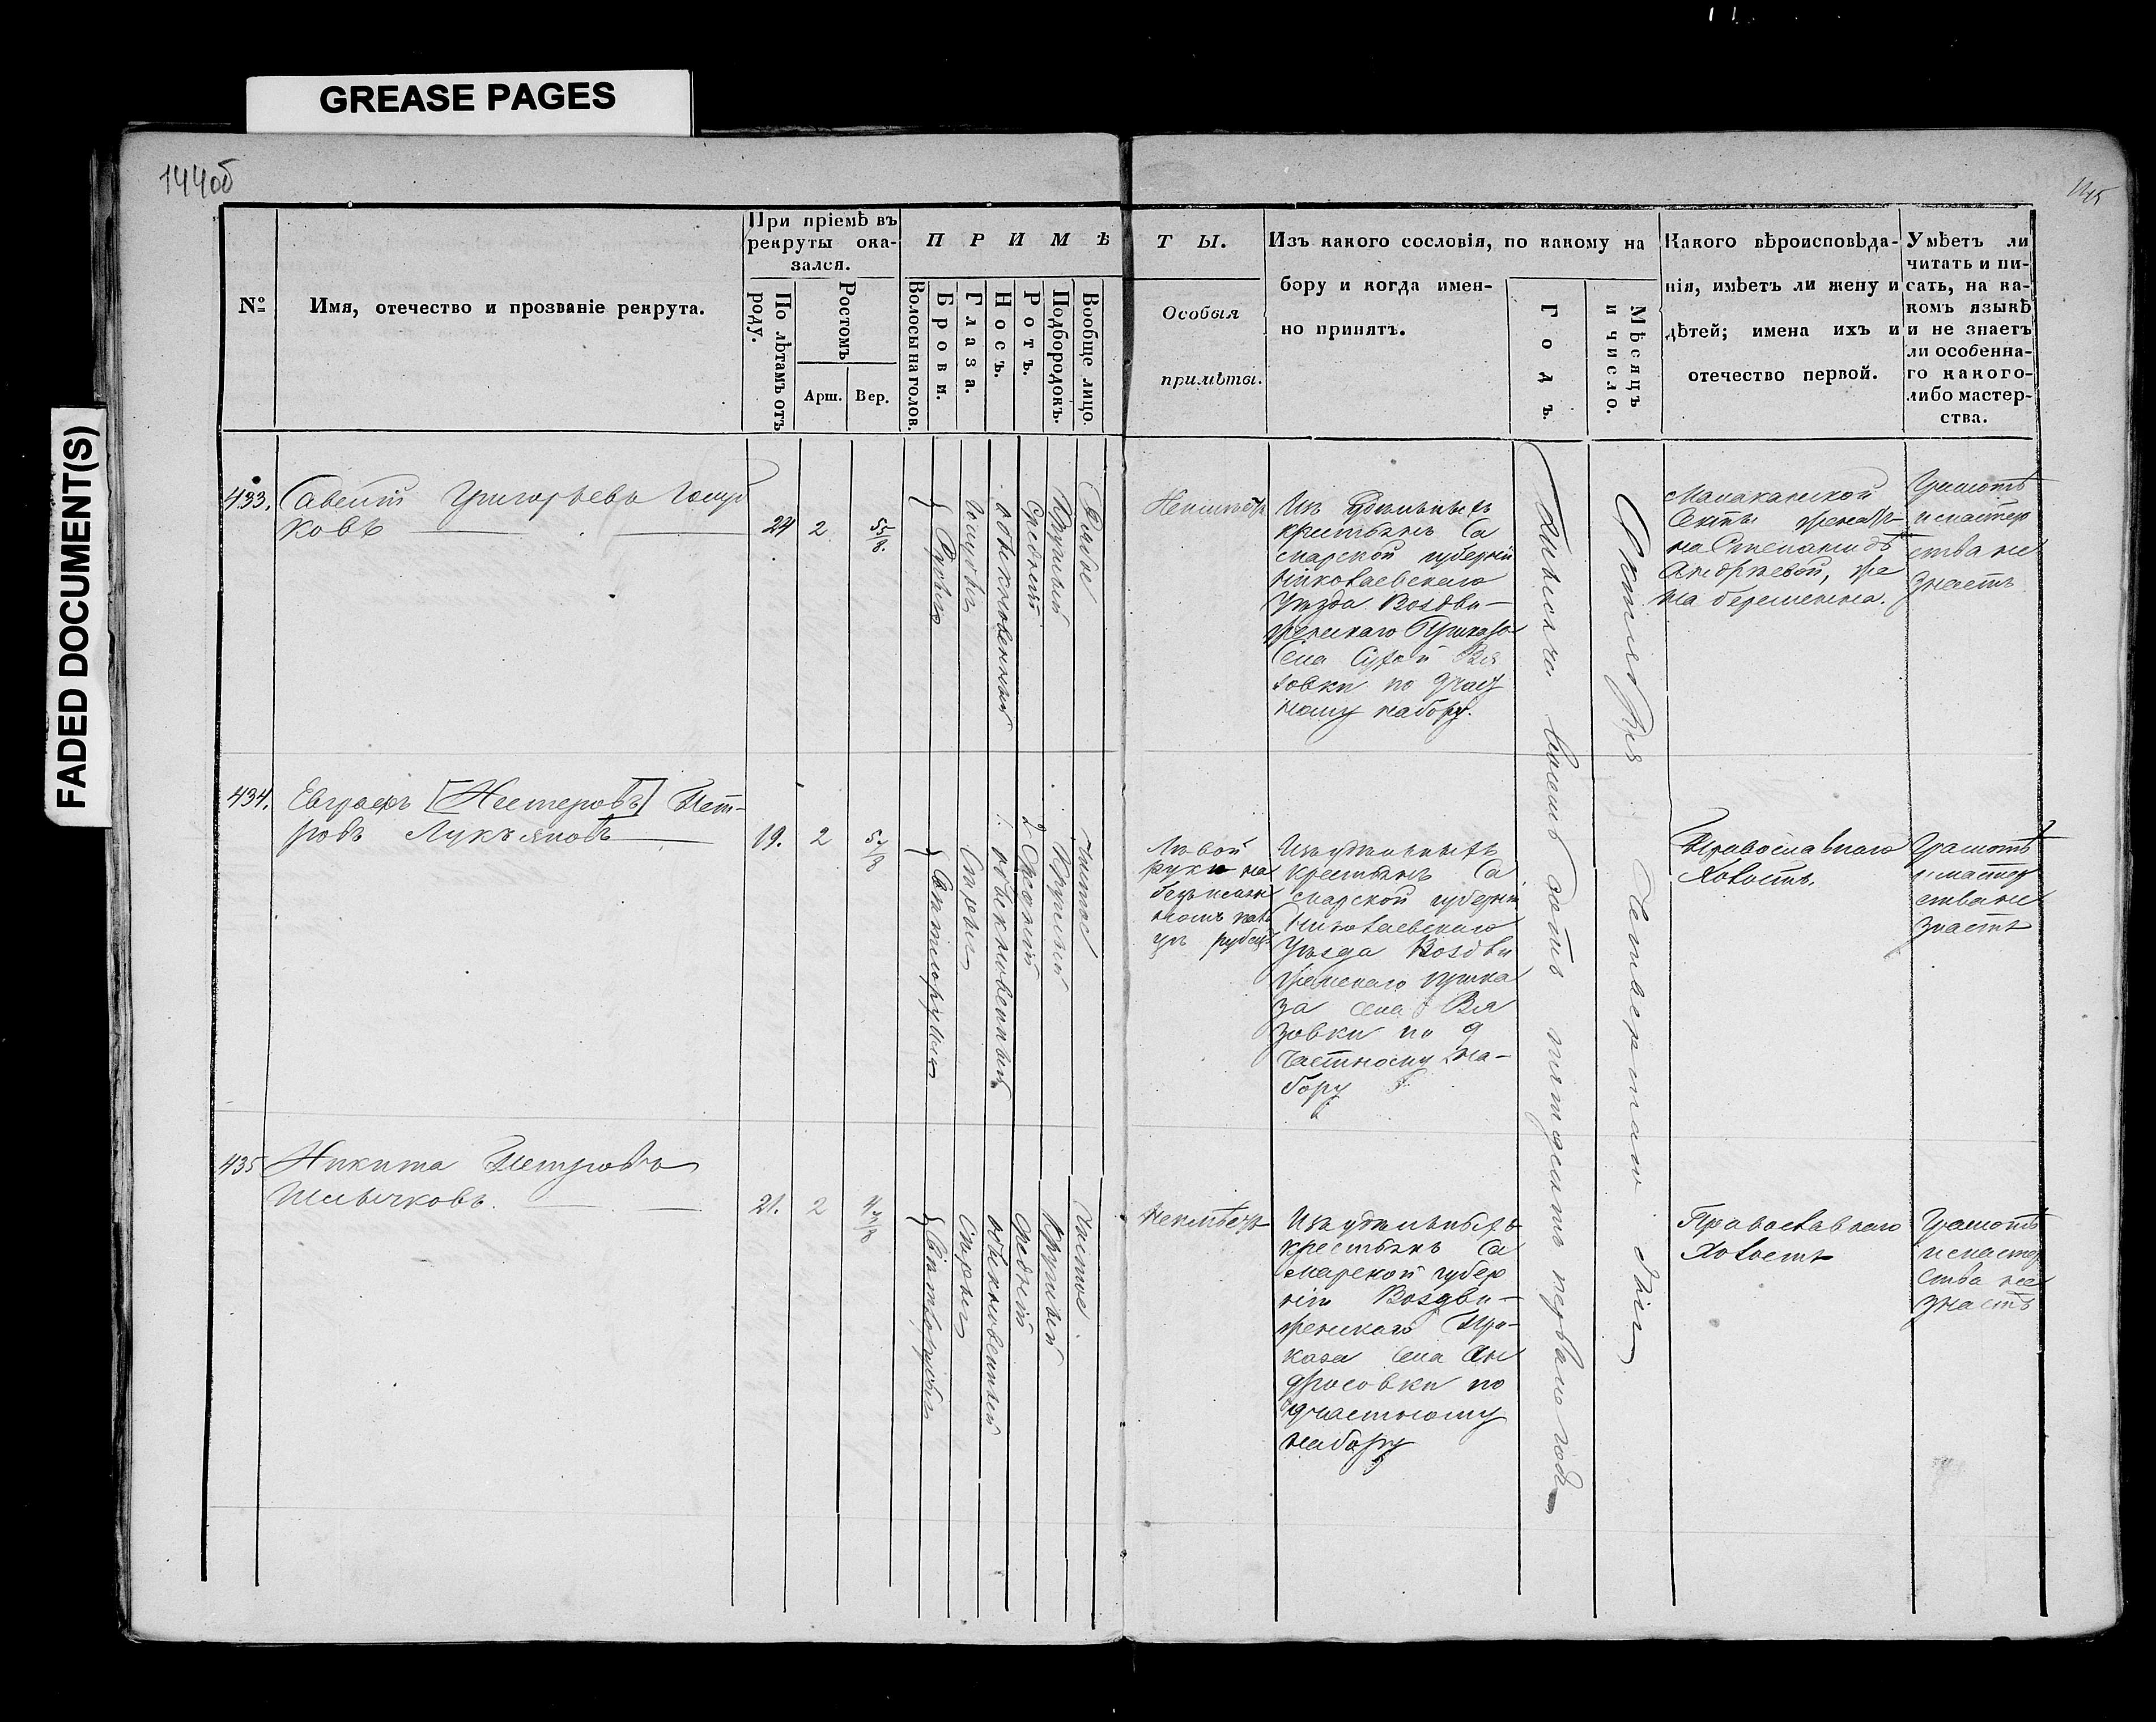 GREASE PAGES
FADED DOCUMENT(S)
144об
145
№
Имя, отечество и прозваніе рекрута.
При пріемѣ въ
рекруты ока-
зался.
По лѣтамъ отъ
роду.
Ростомъ
Арш.
Вер.
ПРИМѢ
Волосы на голов.
Брови.
Глаза.
Носъ.
Ротъ.
Подбородокъ.
Вообще лицо.
ТЫ.
Особыя
примѣты.
Изъ какого сословія, по какому на
бору и когда имен-
но принятъ.
Годъ.
Мѣсяцъ
и число.
Какого вѣроисповѣда-
нія, имѣетъ ли жену и
дѣтей; имена ихъ и
отечество первой.
Умѣетъ ли
читать и пи-
сать, на ка-
комъ языкѣ
и не знаетъ
ли особенна-
го какого-
либо мастер-
ства.
433.
Григорьевъ
ковъ
24
2
5 5/8.
Русыя
обыкновенный
Средній
Круглый
Неимѣетъ
Изъ Удѣльныхъ
крестьянъ Са
марской губерніи
Николаевскаго
Уѣзда Воздви-
женскаго Приказа
Села Сухой Вя
зовки по 9 част
ному набору.
Тысяча восемь сотъ пятьдесятъ перваго года
четвертаго дня
Малаканской
Секты женатъ
на Степанидѣ
Андреевой, же
на беременна.
Грамотѣ
и мастер
ства не
знаетъ
434.
Евграфъ [Нестеровъ] Пет-
ровъ Лукьяновъ
19.
2
5 7/8
Свѣтлорусыя
Сѣрыя
обыкновенный
Средній
Круглый
Чистое
Лѣвой
руки на
безъимен
номъ паль
цѣ рубецъ
Изъ удѣльныхъ
крестьянъ Са
марской губерніи
Николаевскаго
Уѣзда Воздви
женскаго прика
за села Вя
зовки по 9
частному на-
бору
Православнаго
Холостъ.
Грамотѣ
и мастер
ства не
знаетъ
435
Никита Петровъ
21.
2
4 7/8
Свѣтлорусыя
Сѣрыя
обыкновенный
Средній
Круглый
Чистое
Неимѣетъ
Изъ удѣльныхъ
крестьянъ Са
марской губер
ніи Воздви-
женскаго При-
каза села Ан
дросовки по
9 частному
набору
Православнаго
Холостъ
Грамотѣ
и мастер
ства не
знаетъ